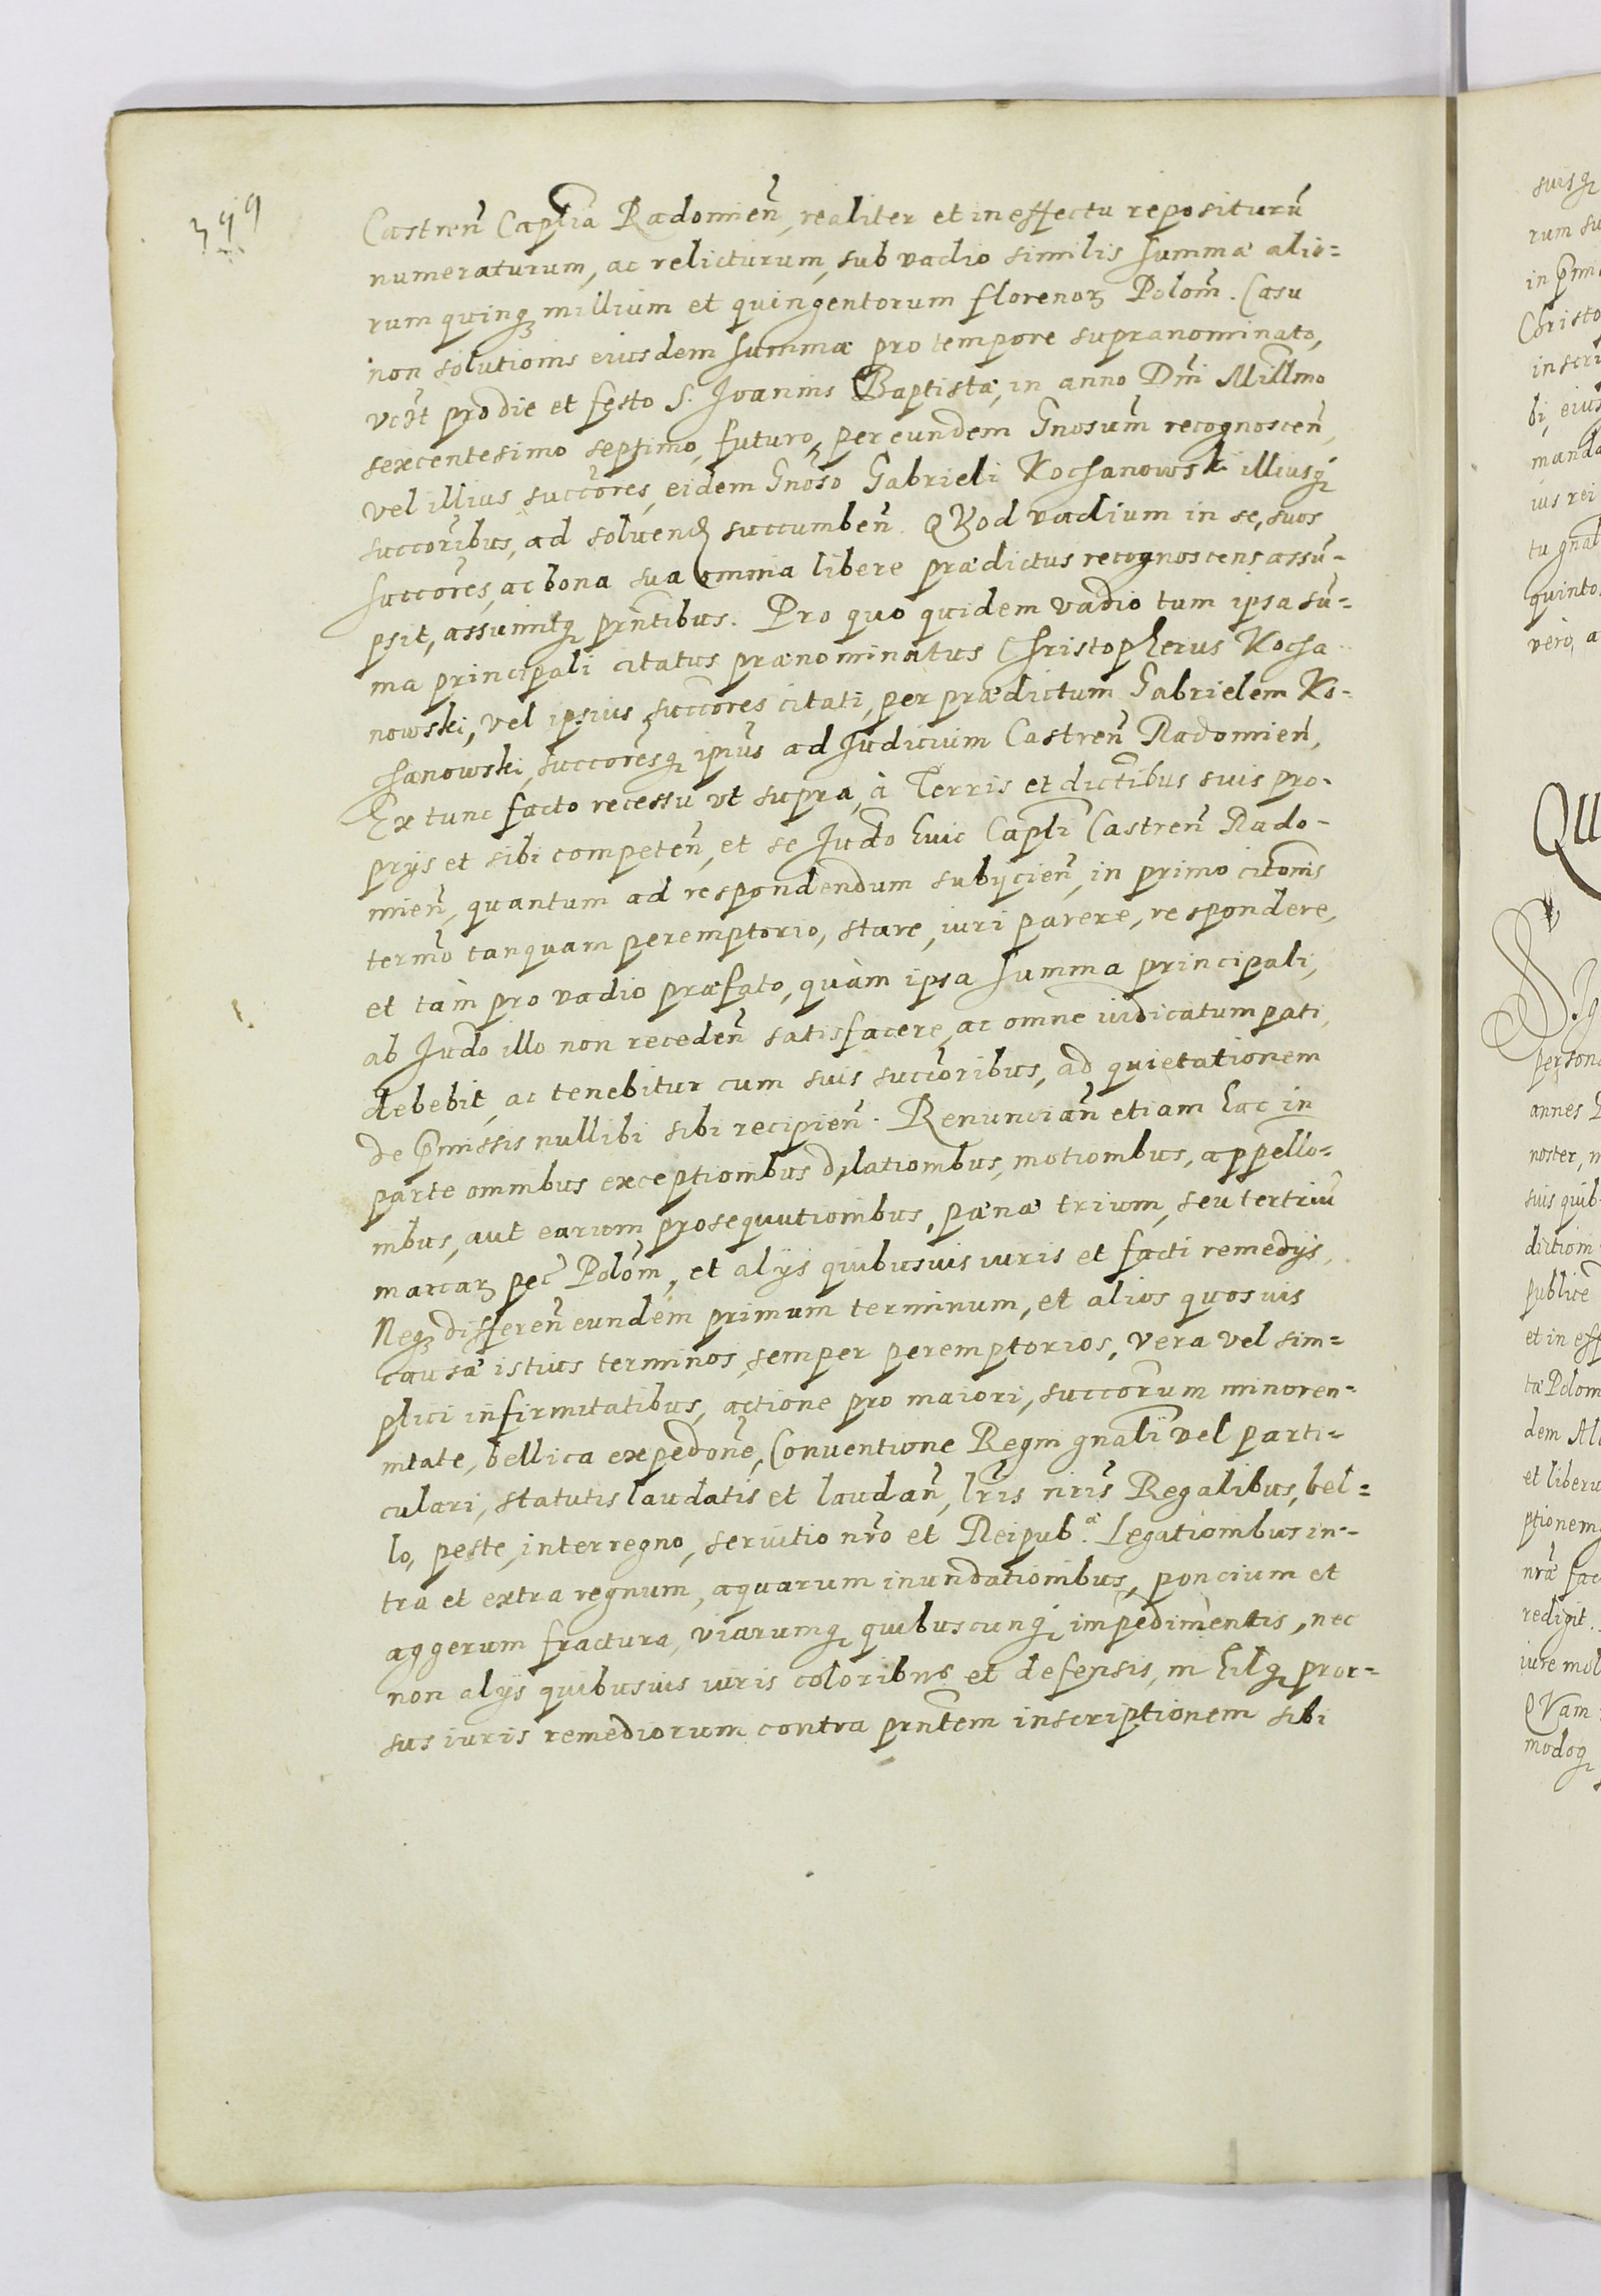 399
Castreñ Capłia Radomieñ, realiter et in effectu repositurū
numeraturum, ac relicturum, sub vadio similis summæ alio=
rum quinqꝫ millium et quingentorum florenoꝝ Polom̃. Casu
non solutionis eiusdem summæ pro tempore supranominato,
vc̃t pro die et festo S. Joannis Baptistæ, in anno Dñi Millm̃o
sexcentesimo septimo, futuro, per eundem Gnosum̃ recognosceñ,
vel illius succores̃, eidem Gnos̃o Gabrieli Kochanowski illiusqꝫ
succorĩbus, ad soluend̃ succumbeñ. QVod vadium in se, suos
succores̃, ac bona sua omnia libere prædictus recognoscens assu=
psit, assumitqꝫ prñtibus. Pro quo quidem vadio tum ipsa su=
ma principali citatus prænominatus Christopherus Kocha
nowski, vel ipsius succores̃ citati, per prædictum Gabrielem Ko=
chanowski, succores̃qꝫ ipiũs ad Judicium Castreñ Radomieñ,
Ex tunc facto recessu vt supra, à Terris et dictĩbus suis pro=
prijs et sibi competeñ, et se Jud̃o huic Capłi Castreñ Rado=
mieñ, quantum ad respondendum subijcieñ, in primo citõnis
term̃o tanquam peremptorio, stare, iuri parere, respondere,
et tàm pro vadio præfato, quàm ipsa summa principali,
ab Jud̃o illo non recedeñ satisfacere, ac omne iudicatum pati,
debebit, ac tenebitur cum suis succorĩbus, ad quietationem
de p̃missis nullibi sibi recipieñ. Renunciañ etiam hac in
parte omnibus exceptionibus dilationibus, motionibus, appello=
nibus, aut earum prosequutionibus, pænæ trium, seu ter trium̃
marcaꝝ pec̃ Polom̃, et alijs quibusuis iuris et facti remedijs,
Neqꝫ differeñ eundem primum terminum, et alios quosuis
causæ istius terminos, semper peremptorios, vera vel sim=
plici infirmitatibus, actione pro maiori, succor̃um minoren=
nitate, bellica expedone̴, Conuentione Regni gnalĩ vel parti=
culari, statutis laudatis et laudañ, lr̃is nr̃is Regalibus, bel=
lo, peste, interregno, seruitio nr̃o et Reipub.ᵃ Legationibus in=
tra et extra regnum, aquarum inundationibus, poncium et
aggerum fractura, viarumqꝫ quibuscunqꝫ impedimentis, nec
non alijs quibusuis iuris coloribus et defensis, nihilqꝫ pror=
sus iuris remediorum contra prñtem inscriptionem sibi